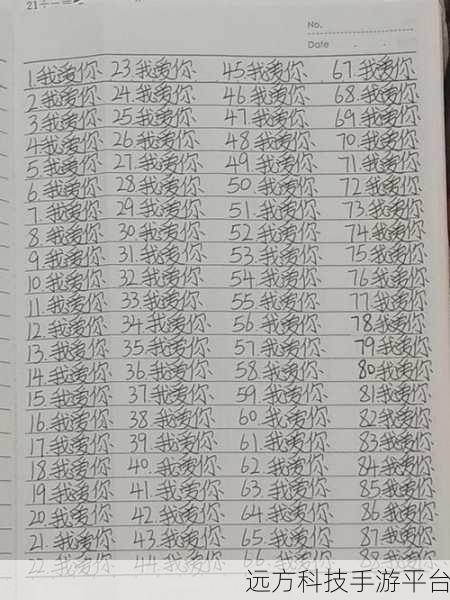 No.
Date
1.我爱你
2.我爱你
3.我爱你
4.我爱你
5.我爱你
6.我爱你
7.我爱你
8.我爱你
9.我爱你
10.我爱你
11.我爱你
12.我爱你
13.我爱你
14.我爱你
15.我爱你
16.我爱你
17.我爱你
18.我爱你
19.我爱你
20.我爱你
21.我爱你
22.我爱你
23.我爱你
24.我爱你
25.我爱你
26.我爱你
27.我爱你
28.我爱你
29.我爱你
30.我爱你
31.我爱你
32.我爱你
33.我爱你
34.我爱你
35.我爱你
36.我爱你
37.我爱你
38.我爱你
39.我爱你
40.我爱你
41.我爱你
42.我爱你
43.我爱你
44.我爱你
45.我爱你
46.我爱你
47.我爱你
48.我爱你
49.我爱你
50.我爱你
51.我爱你
52.我爱你
53.我爱你
54.我爱你
55.我爱你
56.我爱你
57.我爱你
58.我爱你
59.我爱你
60.我爱你
61.我爱你
62.我爱你
63.我爱你
64.我爱你
65.我爱你
66.我爱你
67.我爱你
68.我爱你
69.我爱你
70.我爱你
71.我爱你
72.我爱你
73.我爱你
74.我爱你
75.我爱你
76.我爱你
77.我爱你
78.我爱你
79.我爱你
80.我爱你
81.我爱你
82.我爱你
83.我爱你
84.我爱你
85.我爱你
86.我爱你
87.我爱你
88.我爱你
远方科技手游平台